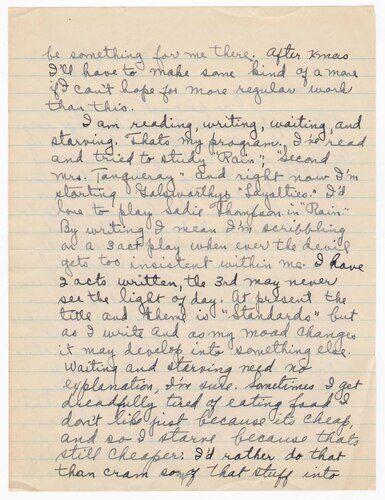 be something for me there. After Xmas
I'll have to make some kind of a move
if I can't hope for more regular work
than this.
I am reading, writing, waiting, and
starving. Thats my program. I've read
and tried to study "Rain", "Second
Mrs. Tanqueray" and right now I'm
starting Galsworthy's "Loyalties." I'd
love to play Sadie Thompson in "Rain."
By writing I mean I'm scribbling
on a 3 act play when ever the devil
gets too insistent within me. I have
2 acts written, the 3rd may never
see the light of day. At present the
title and theme is "Standards" but
as I write and as my mood changes
it may develop into something else.
Waiting and starving need no
explanation, I'm sure. Sometimes I get
dreadfully tired of eating food I
don't like just because its cheap,
and so I starve because thats
still cheaper. I'd rather do that
than cram some of that stuff into